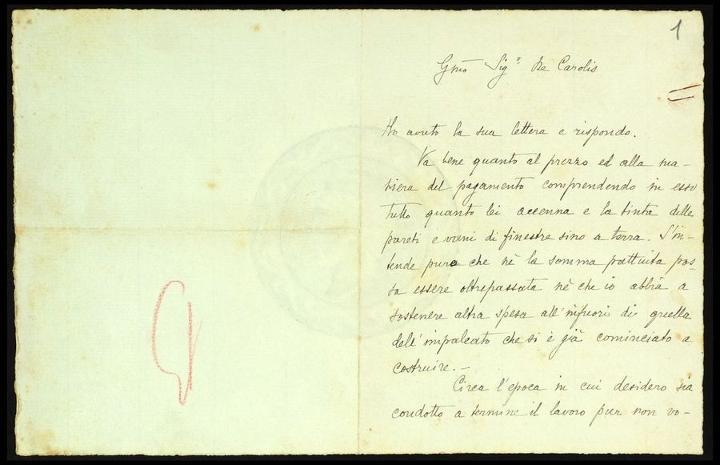 1
Gmo Sigr De Carolis
Ho avuto la sua lettera e rispondo.
Va bene quanto al prezzo ed alla ma-
niera del pagamento comprendendo in esso
tutto quanto lei accenna e la tinta delle
pareti e vani di finestre sino a terra. S'in-
tende pure che nè la somma pattuita pos-
sa essere oltrepassata nè che io abbia a
sostenere altra spesa all'infuori di quella
dell'impalcato che si è già cominciato a
costruire.-
Circa l'epoca in cui desidero sia
condotto a termine il lavoro pur non vo-